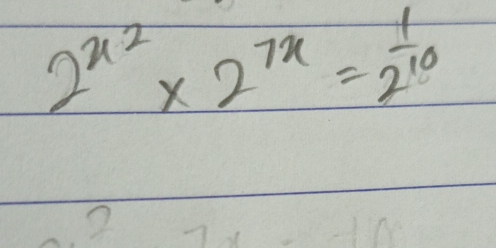 2^{x^2} × 2^{7x} = \frac{1}{2^{10}}